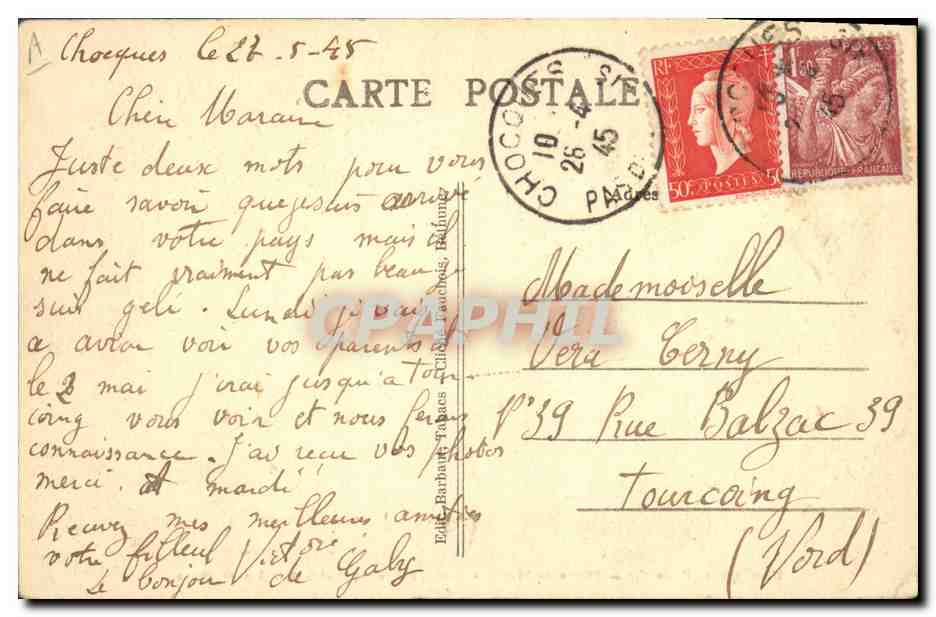 A
Chocques le 27-5-45
CARTE POSTALE
Chère Maraine
Juste deux mots pour vous
faire savoir que je suis arrivé
dans votre pays mais il
ne fait vraiment pas beau je
suis gelé. Lundi je vais
a avion voir vos parents et
le 2 mai j'irai jusqu'a Tour
coing vous voir et nous ferons
connaissance. J'ai reçu vos photos
merci. mardi
Recevez mes meilleures amitiés
votre filleul Victoré
Le bonjour de Gaby
Edit. Barbaut, Tabacs Cliché Fauchois, Béthune
CHOCQUES
10
26 - 4
45
PAS
Adres
RF
50c POSTES 50
45
1F50
REPUBLIQUE-FRANÇAISE
Mademoiselle
Vera Terny
N°39 Rue Balzac 39
Tourcoing
(Nord)
CPAPHIL